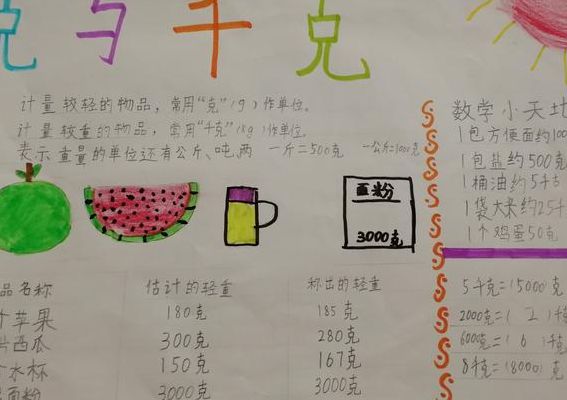 克与千克
计量较轻的物品，常用“克”（g）作单位。
计量较重的物品，常用“千克”（kg）作单位。
表示重量的单位还有公斤、吨、两 一斤=500克 一公斤=1000克
面粉
3000克
品名称 估计的轻重 称出的轻重
苹果 180克 185克
西瓜 300克 280克
水杯 150克 167克
面粉 3000克 3000克
数学小天地
1包方便面约100
1包盐约500克
1桶油约5千克
1袋大米约25千
1个鸡蛋50克
5千克=（5000）克
2000克=（2）千
6000克=（6）千克
8千克=（8000）克